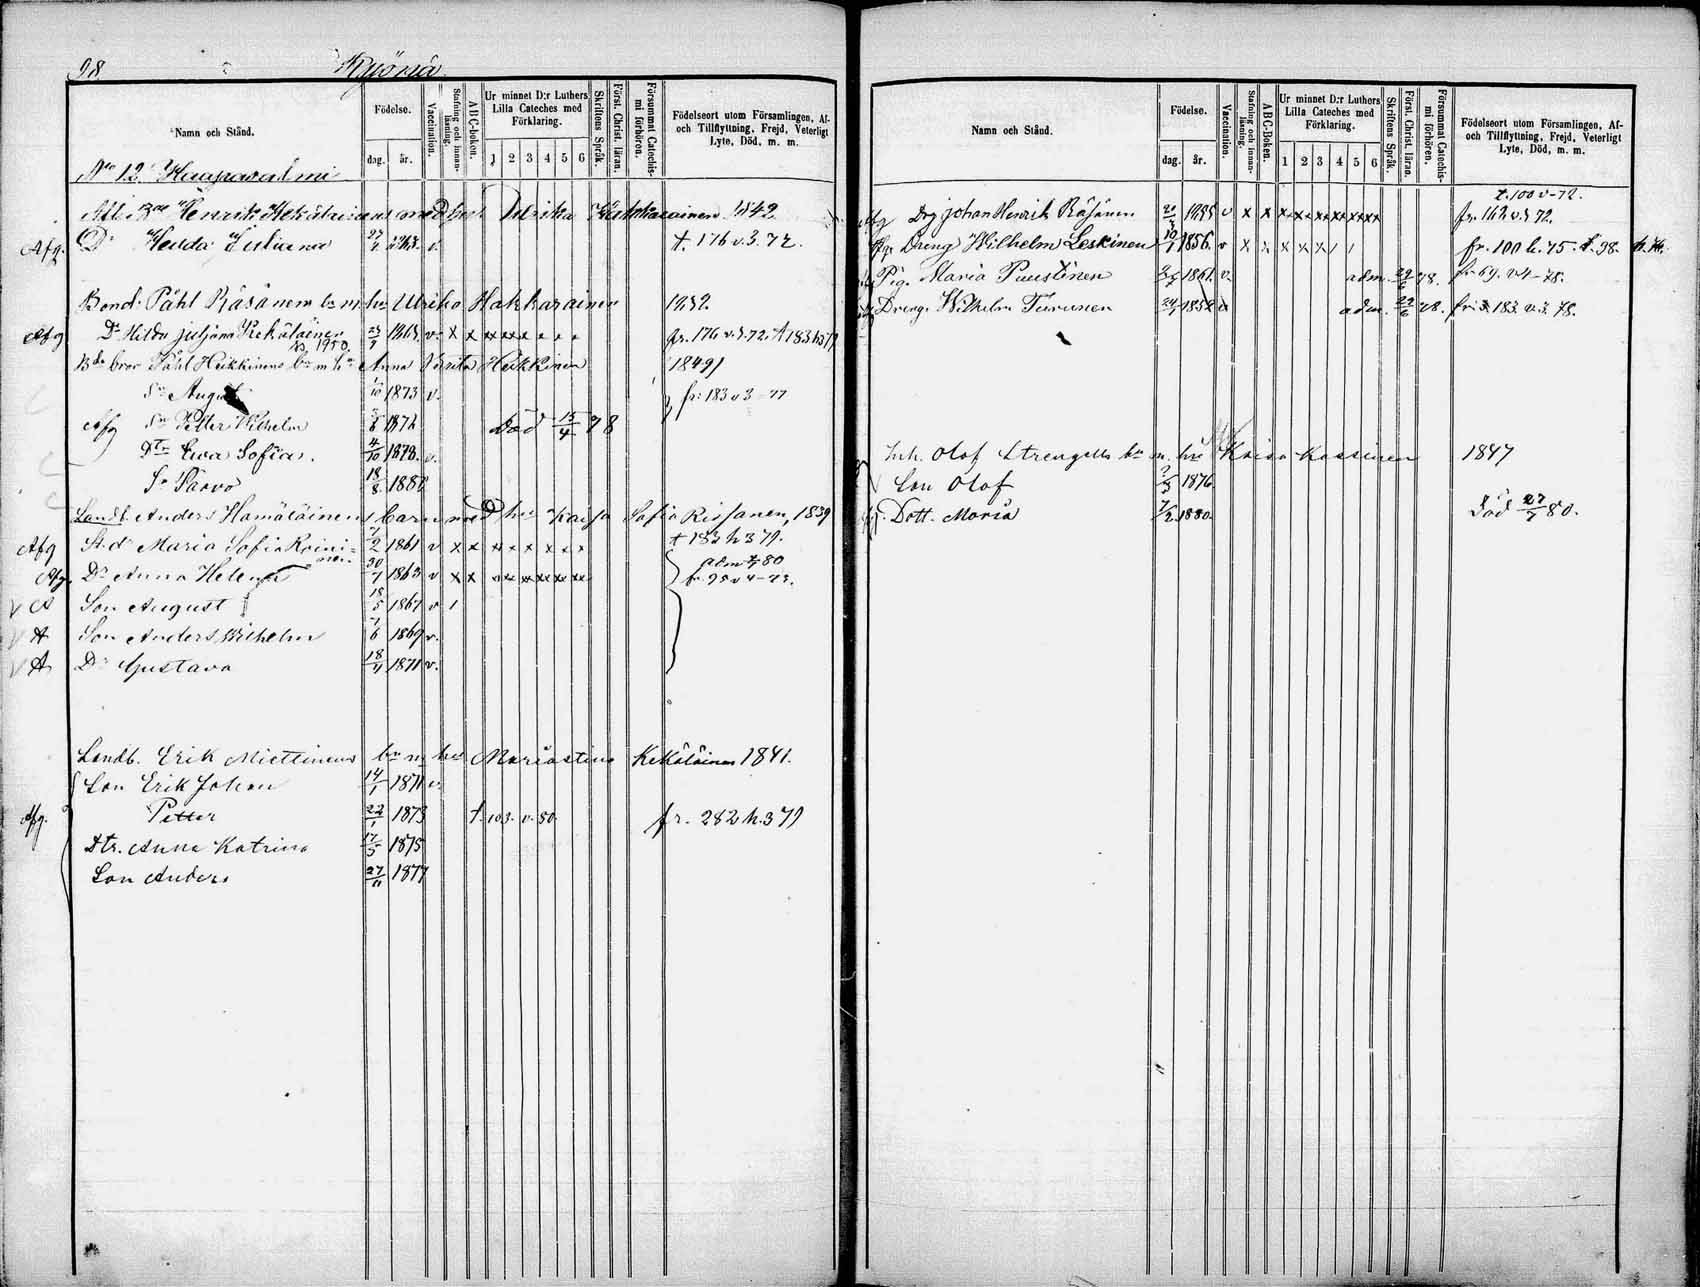 98 Kyönä
Namn och Stånd.
Födelse.
dag. år.
Vaccination.
Stafning och innanläsning.
ABC-boken.
Ur minnet D:r Luthers Lilla Cateches med Förklaring.
1 2 3 4 5 6
Skriftens Språk.
Först. Christ. läran.
Försummat Catechismi förhören.
Födelseort utom Församlingen, Af- och Tillflyttning, Frejd, Veterligt Lyte, Död, m. m.
No 12. Haapavalmi
Henrik Kekäläinens med hust Ulrika 1842
Afg. Dr Hedda Juliana 27/2 v. t. 176 v. 3. 72.
Bond. Påhl Räsänens bn m hu Ulrika Hakkarainen 1832
Afg Dr Hilda Juljana Kekäläinen v x x x x x x x x fr. 176 v. 3. 72. t 183 h 3 79
Bds bror Påhl Heikkinens bn m hu Anna 1849
Sn August 10 1873 v. fr: 183 v 3 77
Afg Sn Petter Wilhelm 1872 Död 15/4 78
Dtr Ewa Sofia. 4/10 1878. v.
Sn Paavo 18/8 188
Landb. Anders Hämäläinens barn med hu Kaisa Sofia Rissanen, 1839
Afg Maria Sofia 2 1861 v x x x x x x x x t 183 h 3 79.
Afg. Dr Anna Helena 30/7 1863 v x x x x x x x x adm 80 fr. 95 v 4 - 73.
v A Son August 18/5 1867 v 1
v A Son Anders Wilhelm 1/6 1869 v.
v A Dr Gustava 18/11 1871 v.
Landb. Erik Miettinens bn m hu Mariastina Kekäläinen 1841.
Son Erik Johan 14/1 1871 v.
Afg. Petter 22/1 1873 t. 103. v. 80. fr. 282 h. 3 79
Dtr. Anna Katrina 17/5 1875
Son Anders 27/11 1877
Namn och Stånd.
Födelse.
dag. år.
Vaccination.
Stafning och innanläsning.
ABC-Boken.
Ur minnet D:r Luthers Lilla Cateches med Förklaring.
1 2 3 4 5 6
Skriftens Språk.
Först. Christ. läran.
Försummat Catechismi förhören.
Födelseort utom Församlingen, Af- och Tillflyttning, Frejd, Veterligt Lyte, Död, m. m.
t. 100 v - 72.
Afg Drg Johan Henrik Räsänen 1855 v x x x x x x x x x x fr. 162 v. 3 72.
Afg. Dreng Wilhelm Leskinen 10/1 1856. v x x x x x fr. 100 h. 75. t. 98.
Pig. Maria Puustinen 1861. v. adm. 78. fr. 69. v 4 - 78.
Dreng. Wilhelm Turunen 24 1852 v adm. 22/6 78. fr. 183. v. 3. 78.
Inh. Olof Strengells bn m. hu Kaisa Kassinen 1847
Son Olof 1876
Dott. Maria 1/2 1880. Död 27/7 80.